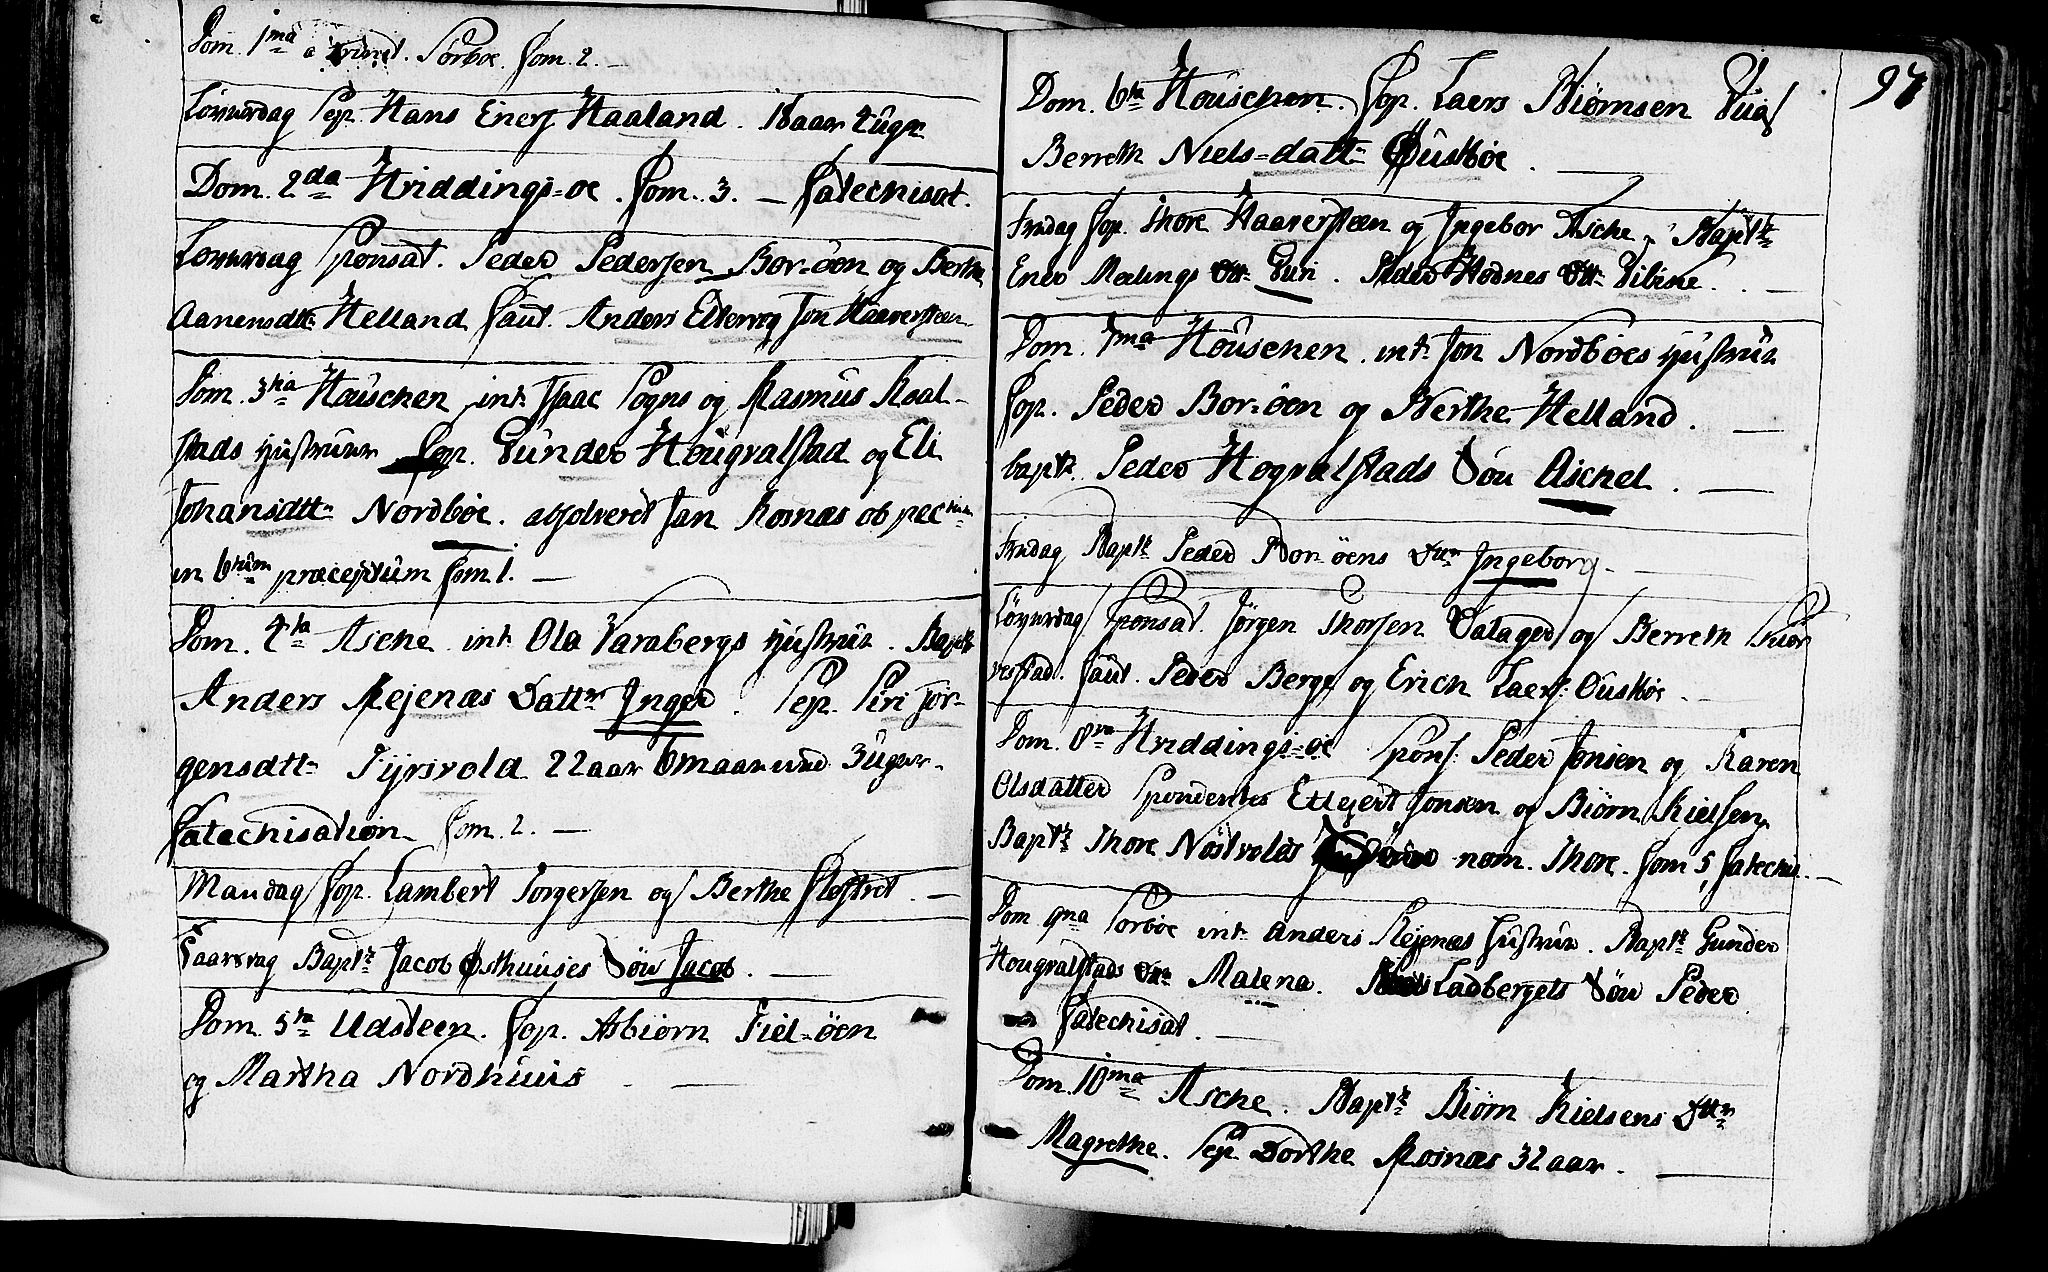 Dom. 1ma a trinit. Sörboe. Com. 2. —
Löverdag Sep. Hans Enersj Haaland. 18 aar 4 uger
Dom. 2da Hviddings-oe. Com. 3. — Catechisat.
Löverdag Sponsat. Peder Pedersen Bor-öen og Berthe
Aanensdtt: Helland Caut. Anders Eltervog Jon Haaversteen
Dom. 3tia Houschen int: Isaac Sogns og Rasmus Aal-
stads Hustruer Cop. Gunder Hougvalstad og Eli
Johansdtt: Nordböe. absolveret Jan Rosnæs ob pecc:
in 6tum præceptum Com 1. —
Dom. 4ta Asche int: Ola Varabergs Hustrue. Bapt:
Anders Rejenæs Datter Inger. Sep. Siri Jör-
gensdtt: Fijrsvold 22 aar 6 maaneder 3 uger.
Catechisation Com. 2. —
Mandag Cop. Lambert Torgersen og Berthe Clostret. —
Taarsdag Bapt: Jacob Østhuuses Sön Jacob. —
Dom. 5ta Udsteen. Cop. Asbiörn Fiel-öen
og Martha Nordhuus —
97
Dom. 6ta Houschen. Cop. Laers Biörnsen
Berreth Niels-datt: Ouskböe. —
Fredag Cop. Thore Haaversteen og Ingebor Asche. Bapt:
Ener Mælings dtt: Guri. Peder Hodnes dtt:
Dom. 7ma Houschen. int: Jon Nordböes Hustrue
Cop. Peder Bor-öen og Berthe Helland. —
bapt: Peder Hogvalstads Sön Aschel. —
Fredag Bapt: Peder Bor-öens dtter Ingeborg. —
Löverdag Sponsat. Jörgen Thorsen Valager og Berreth
vestad. Caut. Peder Berge og Erich Laers: Ouskböe
Dom. 8va Hviddings-oe Spons: Peder Jonsen og Karen
Olsdatter Spondentes Ellejert Jonsen og Biörn Kielsen
Bapt: Thore Nöstvolds Sön nom. Thore. Com 5, Catechis. —
Dom 9na Sorböe int: Anders Rejenæs Hustrue. Bapt: Gunder
Hougvalstads dtter Malena. Ladbergets Sön Peder
Catechisat. —
Dom. 10ma Asche. Bapt: Biörn Kielsens dtter
Magrethe. Sep Dorthe Rosnæs 32 aar. —